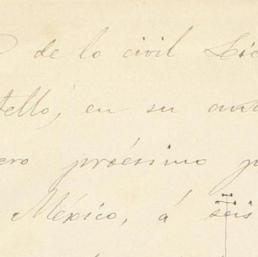 de lo civil Lic
tello, en su aut
ero procsimo p
México, á seis